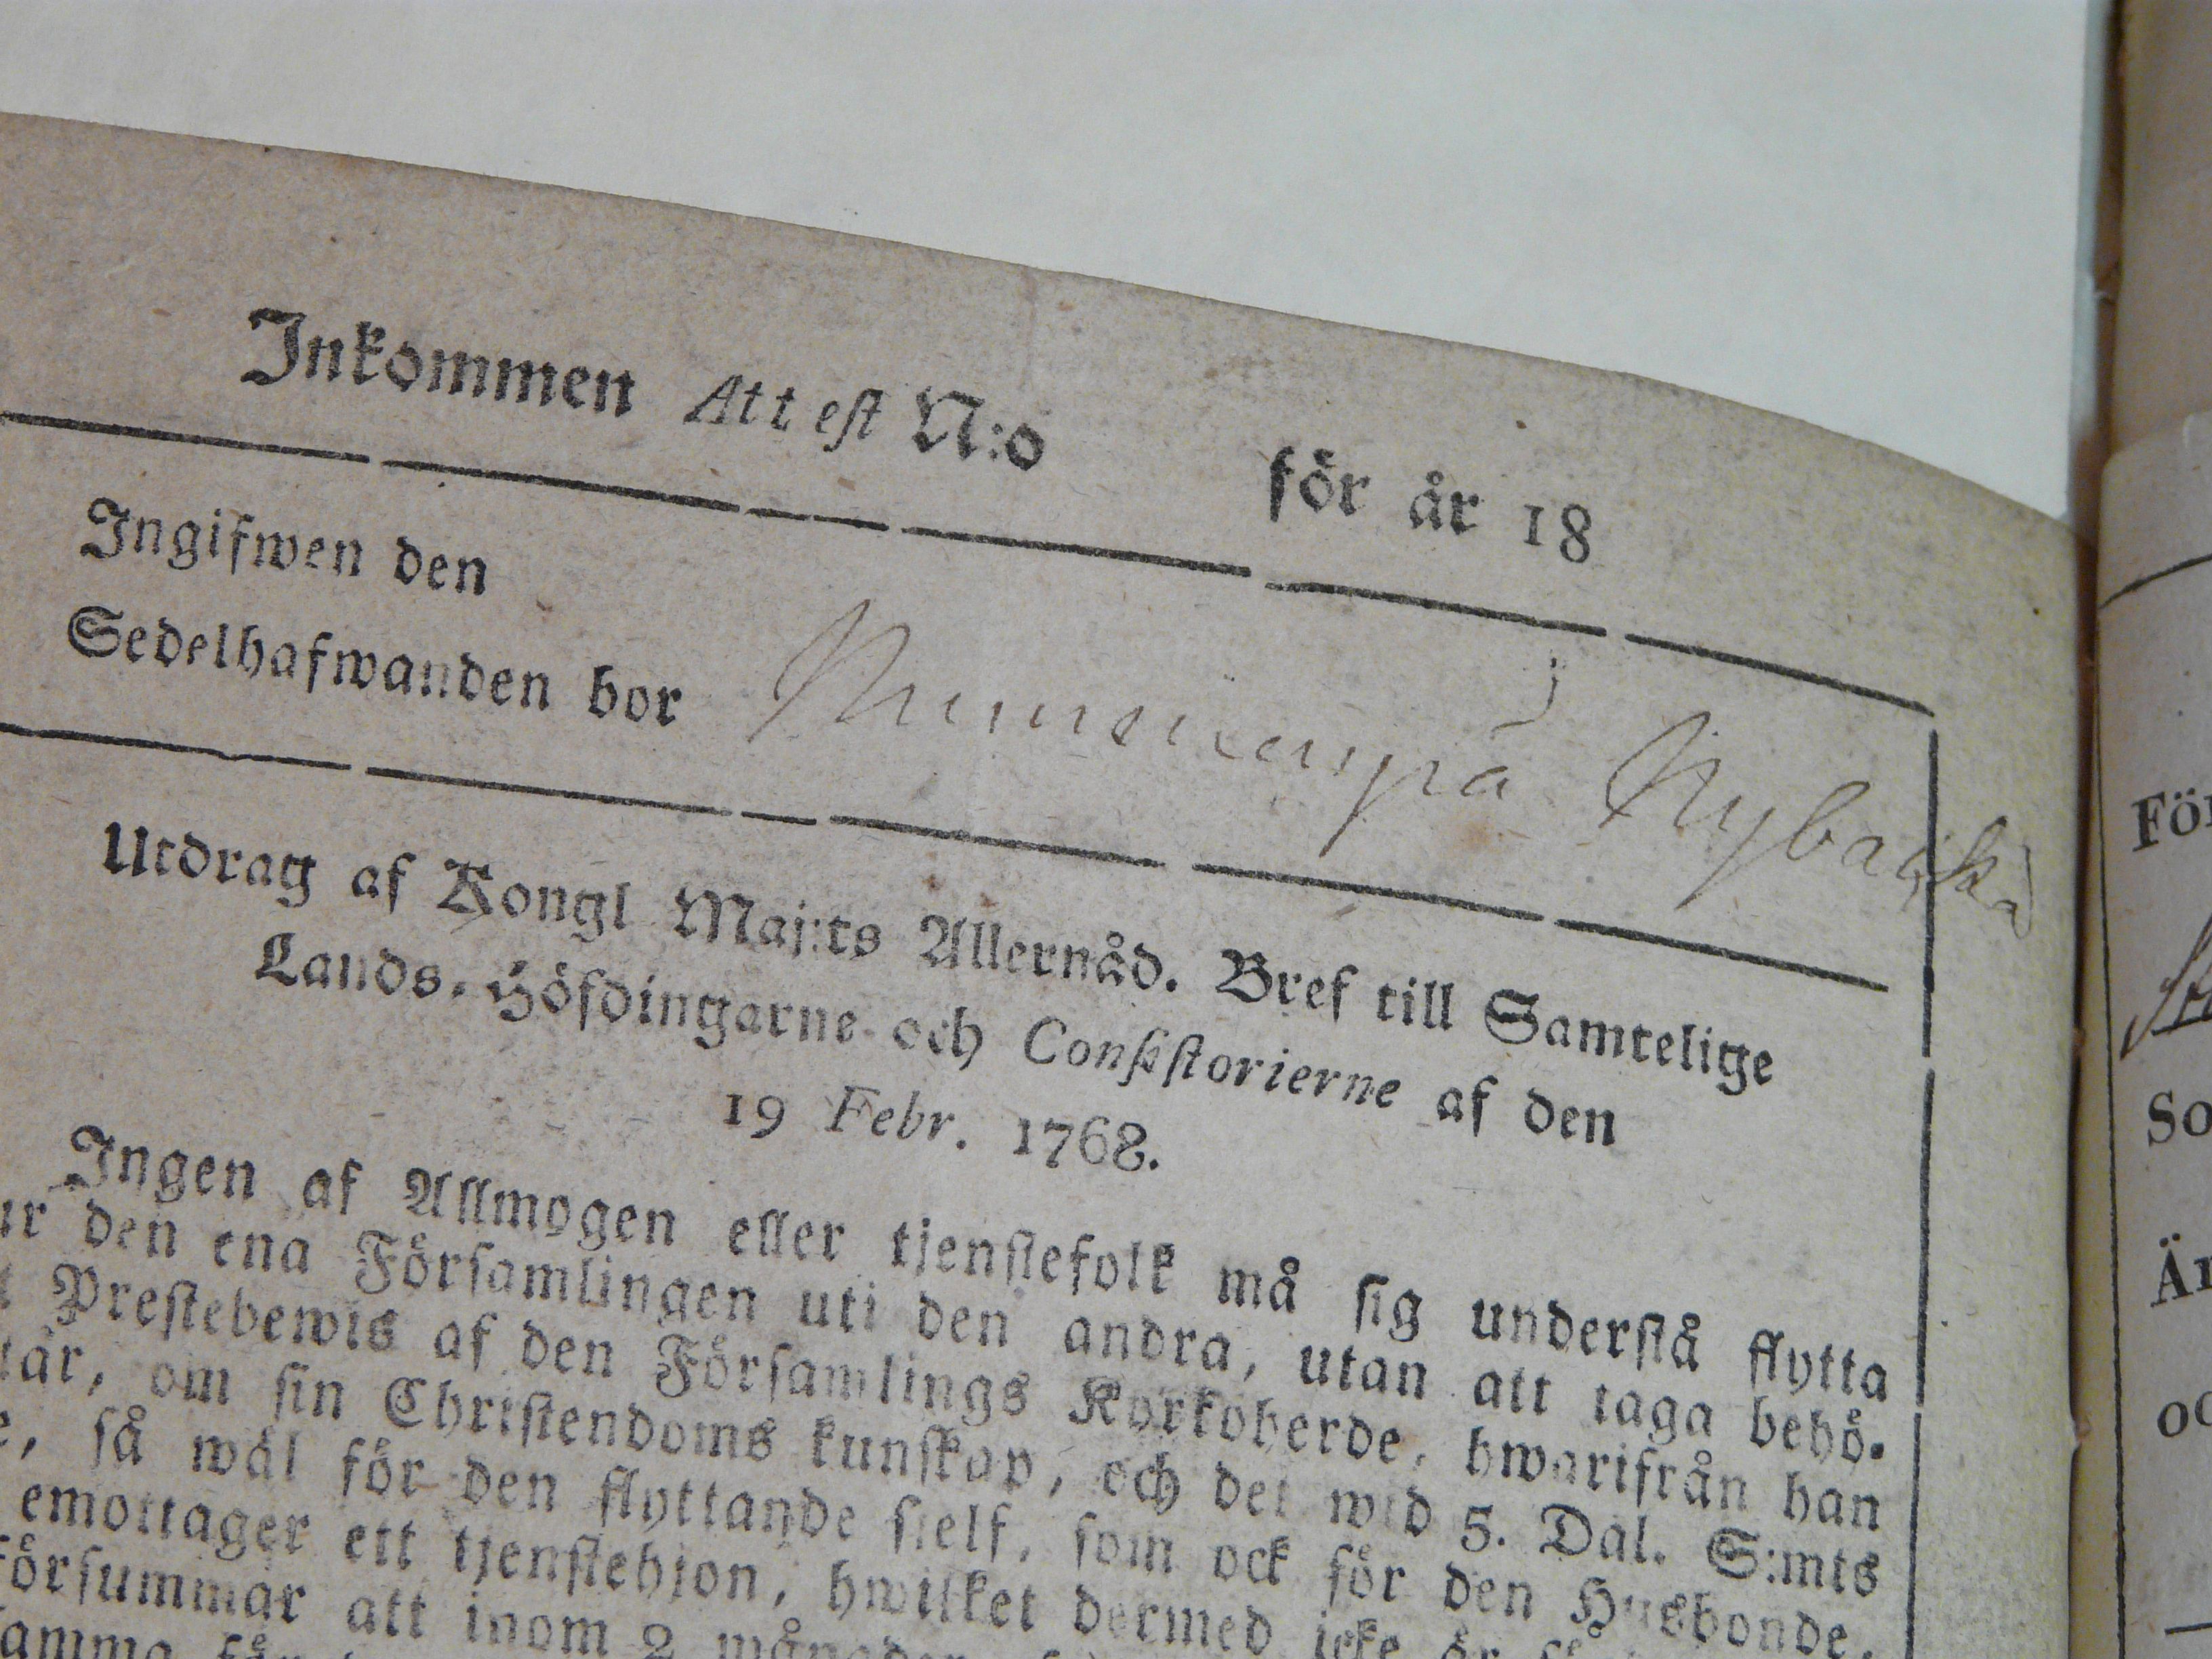 Inkommen Attest N:o för år 18
Ingifwen den
Sedelhafwanden bor på Nybacka
Utdrag af Kongl Maj:ts Allernåd. Bref till Samtelige
Lands-Höfdingarne och Consistorierne af den
19 Febr. 1768.
Ingen af Allmogen eller tjenstefolk må sig understå flytta
ur den ena Församlingen uti den andra, utan att taga behö-
Prestebewis af den Församlings Kyrkoherde, hwarifrån han
om sin Christendoms kunskap, och det wid 5. Dal. S:mts
så wäl för den flyttande sielf, som ock för den Husbonde,
emottager ett tjenstehjon, hwilket dermed icke är
försummar att inom 2 månader
samma
För
So
Är
oc